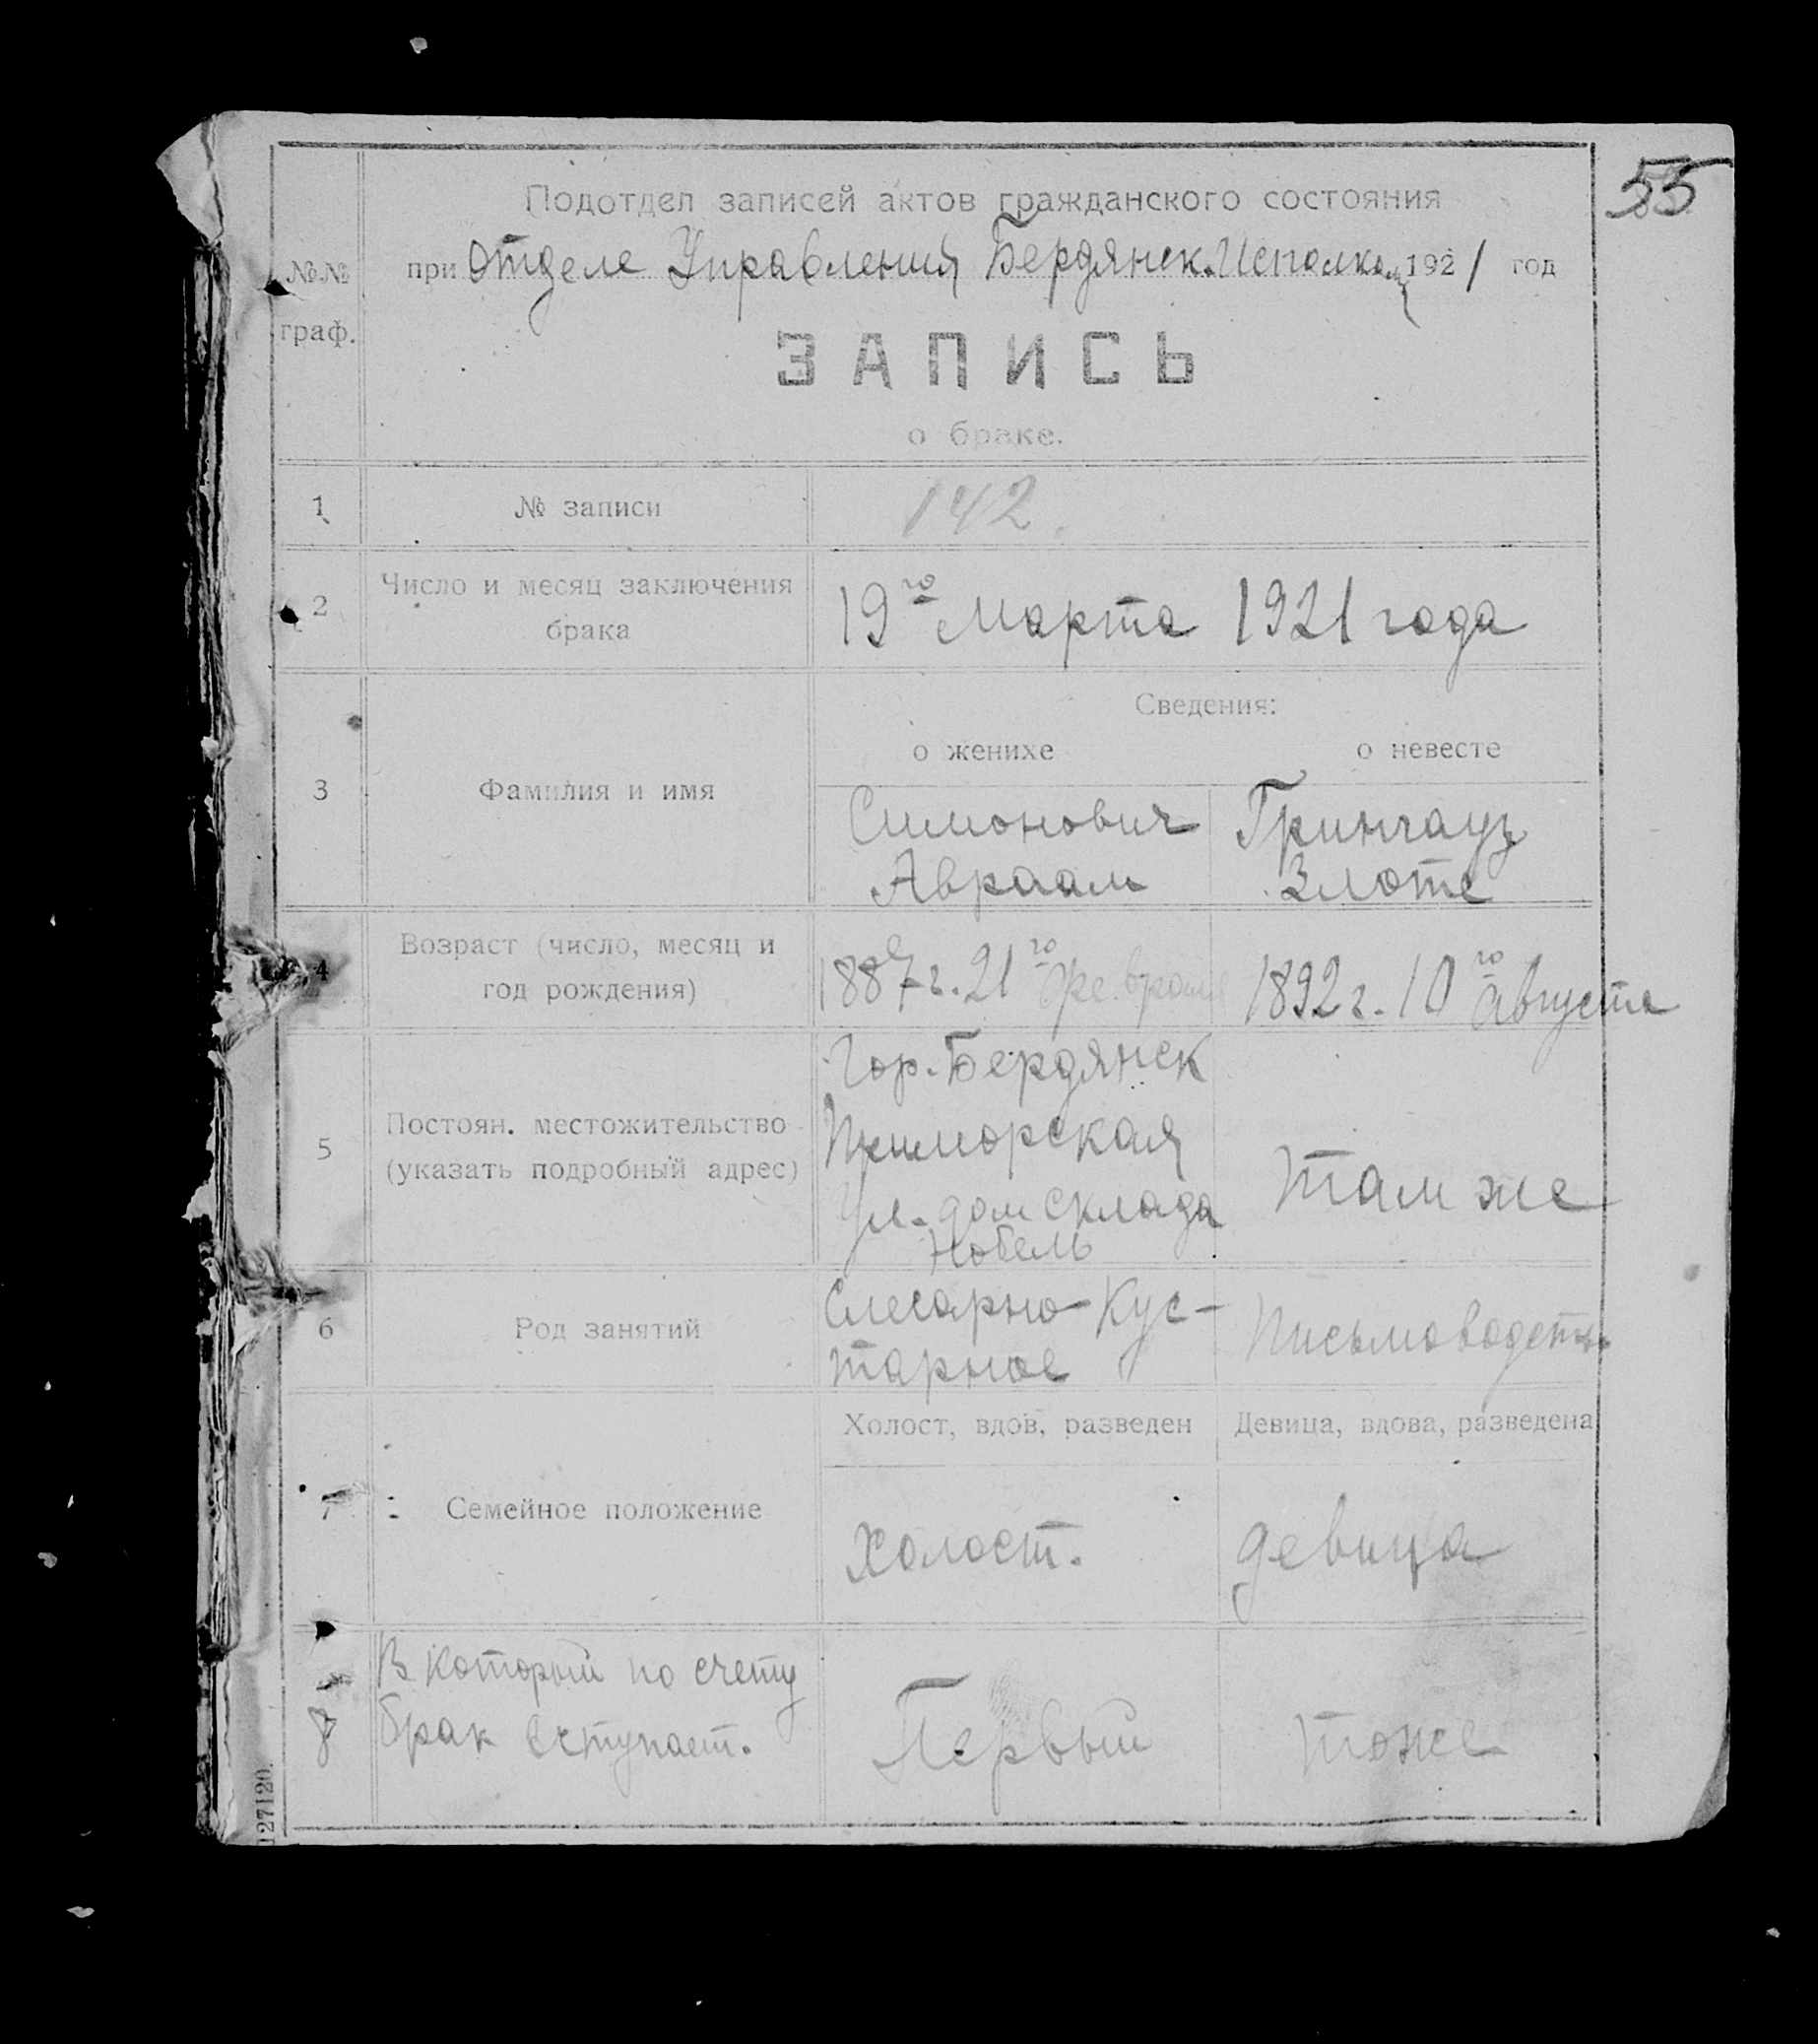 55
Подотдел записей актов гражданского состояния
при Отделе Управления Бердянск. Исполкома 1921 год
№№
граф.
ЗАПИСЬ
о браке.
1 № записи 142.
2 Число и месяц заключения
брака
19го Марта 1921 года
Сведения:
о женихе о невесте
3 Фамилия и имя
Симонович Гринчауз
Авраам Злоте
4 Возраст (число, месяц и
год рождения)
1887г. 21го февраля 1892г. 10го Августа
5 Постоян. местожительство
(указать подробный адрес)
Гор. Бердянск
Приморская
Ул. дом склада
Нобель
Там же
6 Род занятий
Слесарно-Кус-
тарное
Письмоводств.
Холост, вдов, разведен Девица, вдова, разведена
7 Семейное положение
Холост. девица
8 В который по счету
брак вступает.
Первый тоже
127120.